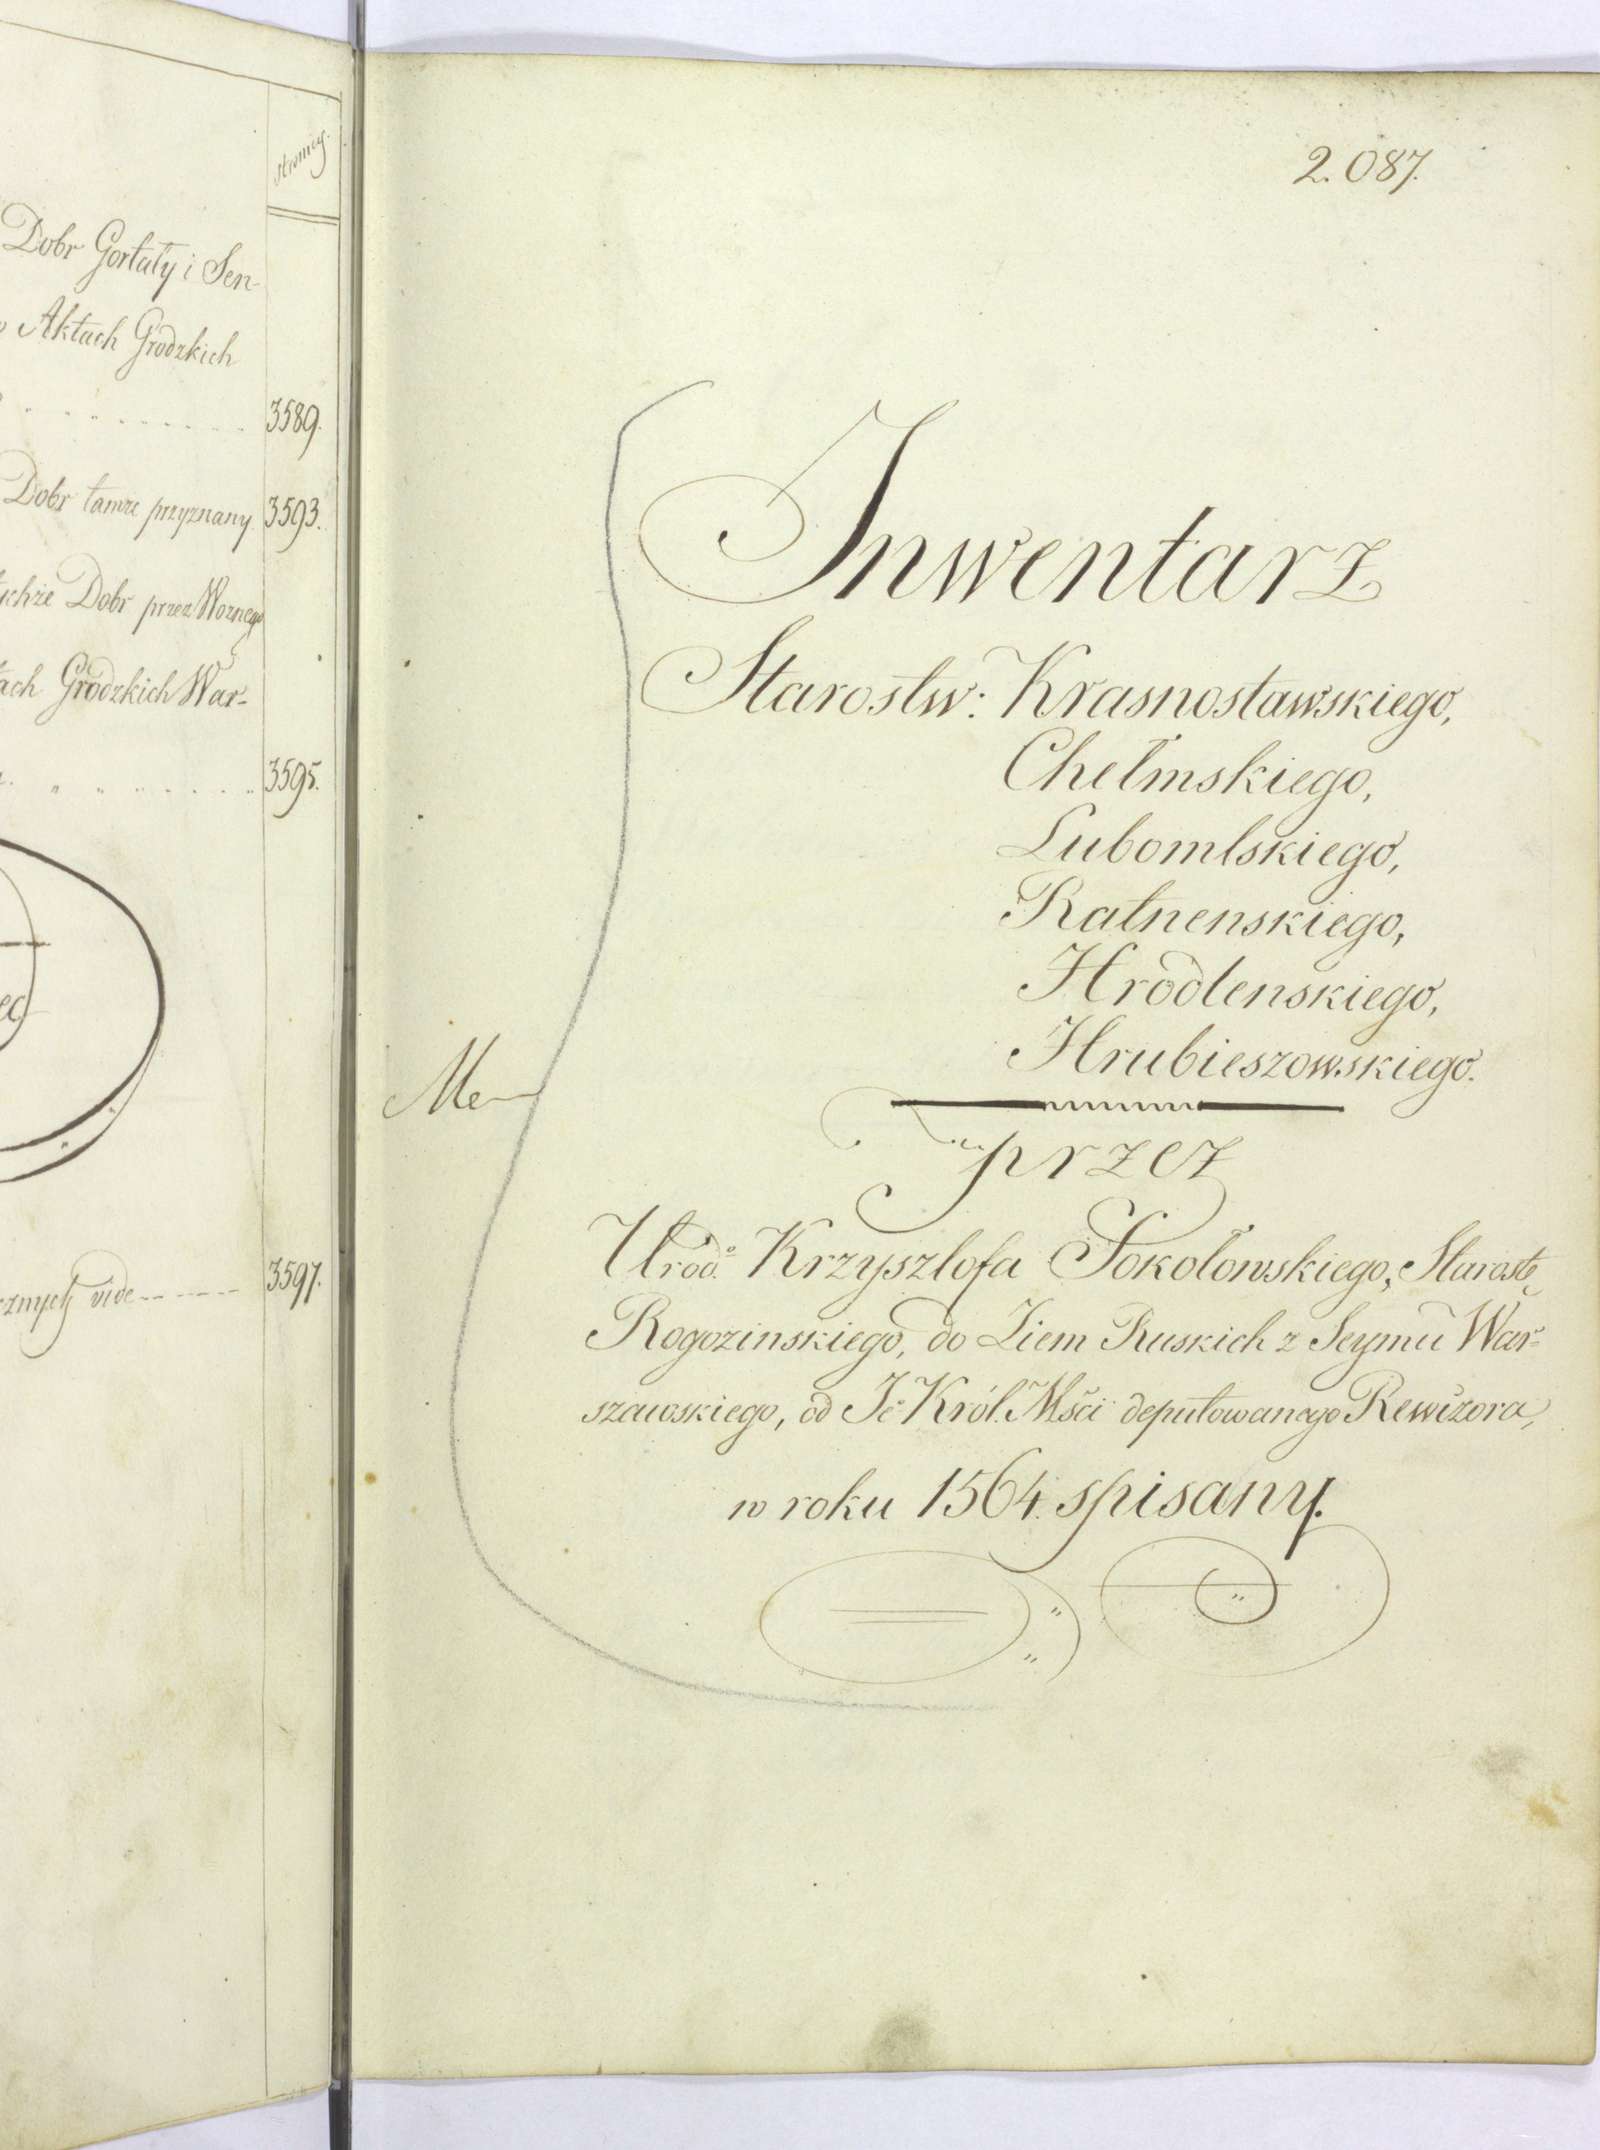 stronicy.
Dobr Gortaty i Sen-
Aktach Grodzkich
3589.
Dobr tamże przyznany 3593.
Dobr przez Woznego
Grodzkich War-
3595.
vide 3597.
2.087.
Inwentarz
Starostw: Krasnostawskiego,
Chełmskiego,
Lubomlskiego,
Ratnenskiego,
Hrodlenskiego,
Hrubieszowskiego.
przez
Urodo. Krzysztofa Sokołowskiego, Starostę
Rogozinskiego, do Ziem Ruskich z Seymu War-
szawskiego, od Je Król. Mści deputowanego Rewizora,
w roku 1564. spisany.